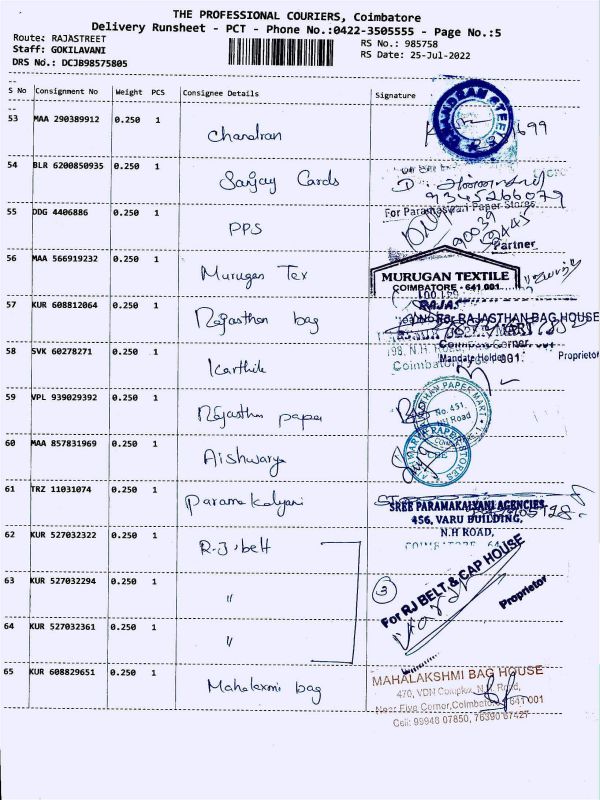 THE PROFESSIONAL COURIERS, Coimbatore
Delivery Runsheet - PCT - Phone No.:0422-3505555 - Page No.:5
Route: RAJASTREET
Staff: GOKILAVANI
DRS No.: DCJB98575805
RS No.: 985758
RS Date: 25-Jul-2022
S No Consignment No Weight PCS Consignee Details Signature
53 MAA 290389912 0.250 1 Chandran
54 BLR 6200850935 0.250 1 Sanjay Cards
9345266079
55 DDG 4406886 0.250 1 PPS
For Parameswari Paper Stores
90039
Partner
56 MAA 566919232 0.250 1 Murugan Tex
MURUGAN TEXTILE
COIMBATORE - 641 001
57 KUR 608812064 0.250 1 Rajasthan bag
For RAJASTHAN BAG HOUSE
Proprietor
58 SVK 60278271 0.250 1 Karthik
198, N.H. Road
59 VPL 939029392 0.250 1 Rajasthan paper
No. 451,
60 MAA 857831969 0.250 1 Aishwarya
61 TRZ 11031074 0.250 1 Paramakalyani
SREE PARAMAKALYANI AGENCIES
456, VARU BUILDING,
N.H ROAD,
62 KUR 527032322 0.250 1 R.J. belt
63 KUR 527032294 0.250 1 "
3
For RJ BELT & CAP HOUSE
Proprietor
64 KUR 527032361 0.250 1 "
65 KUR 608829651 0.250 1 Mahalaxmi bag
MAHALAKSHMI BAG HOUSE
470, VDN Complex, N.H. Road,
Near Five Corner, Coimbatore - 641 001
Cell: 99948 07850, 76390 67427